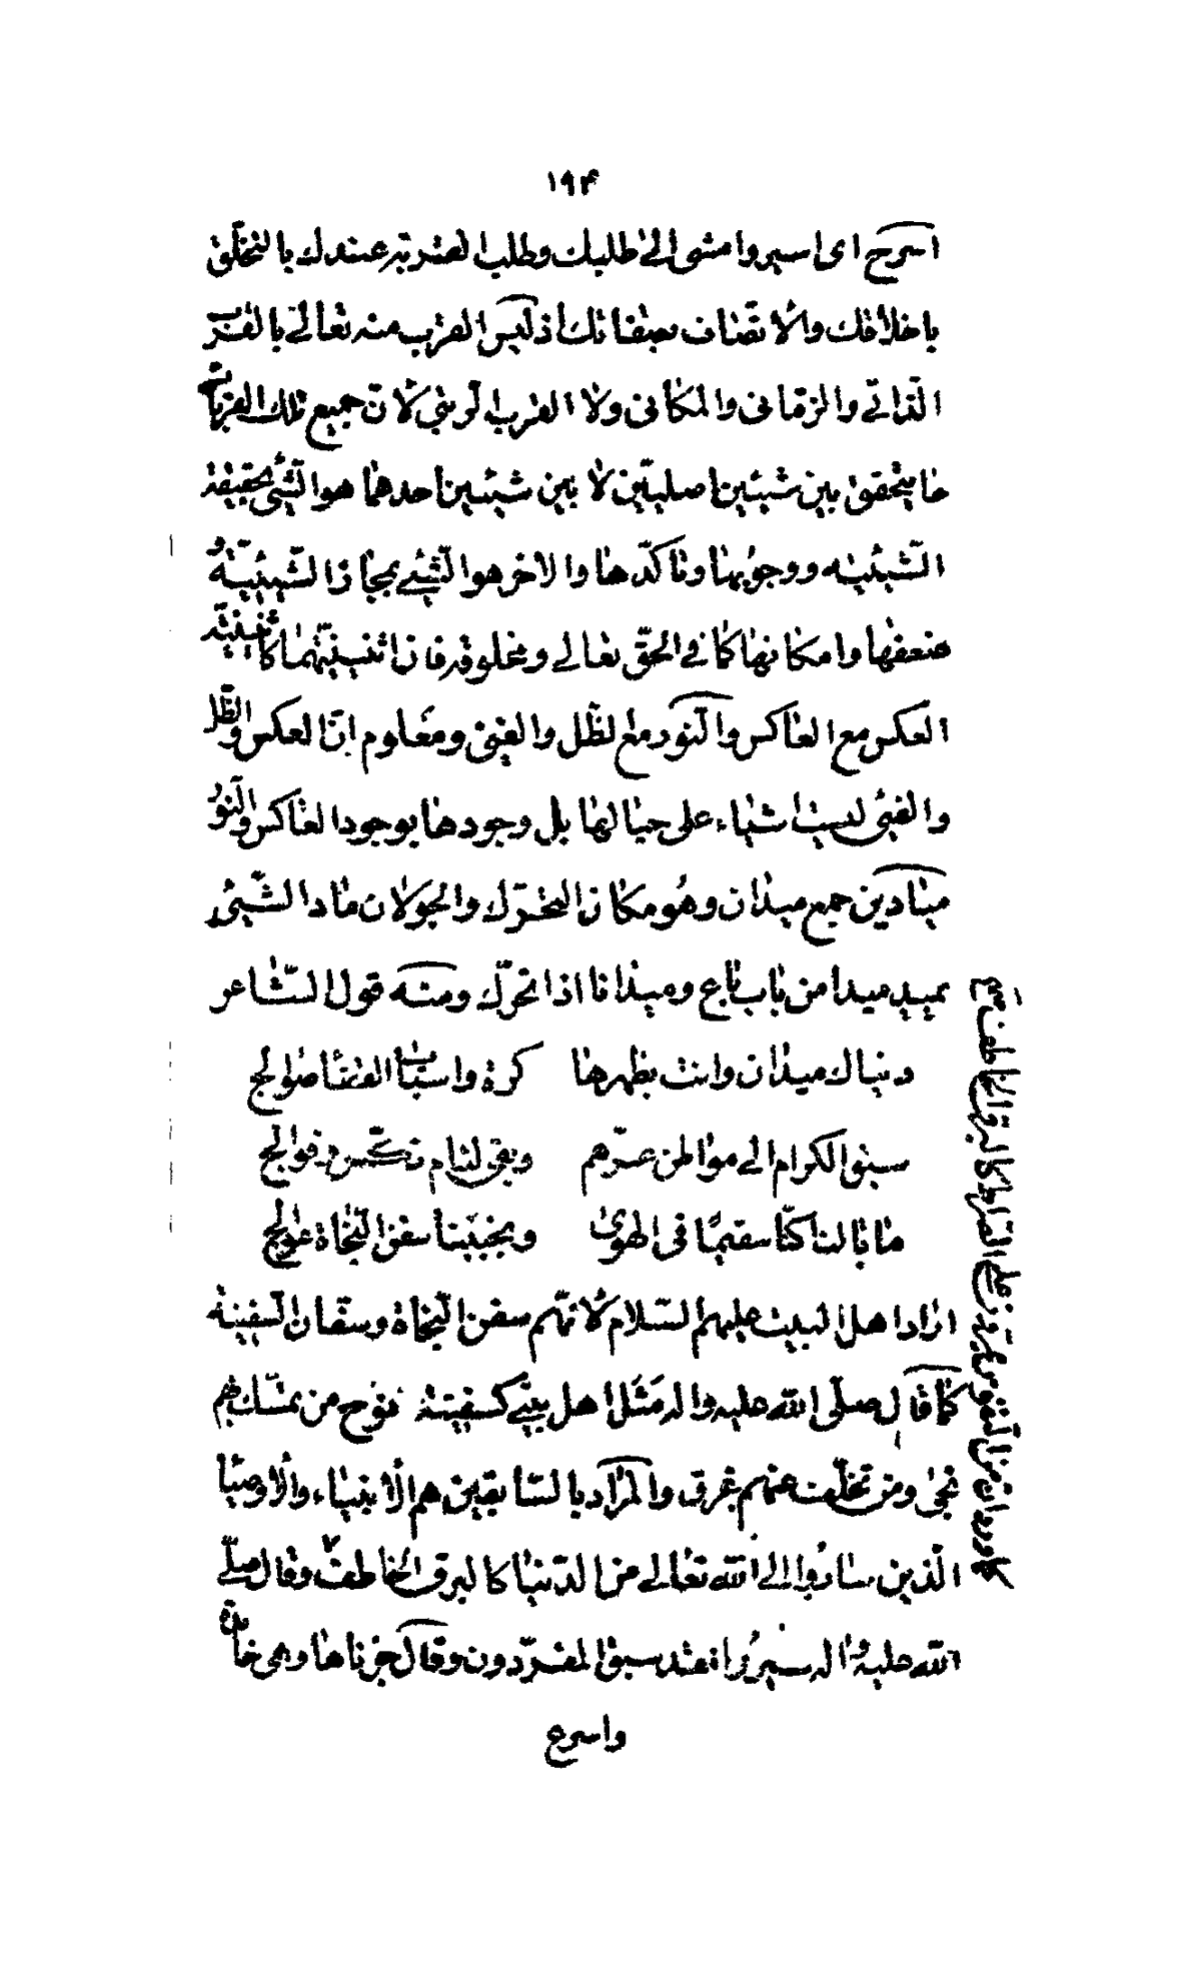 ١٩۴
اسرح اى اسير وامشى الى طلبك وطلب القربة عندك بالتخلّق
باخلاقك والاتّصاف بصفاتك اذ ليس القرب منه تعالى بالقرب
الذّاتى والزّمانى والمكانى ولا القرب الرتبى لانّ جميع تلك القربات
مما يتحقق بين شيئين اصليّين لا بين شيئين احدهما هو الشّئ بحقيقة
الشّيئيّه ووجوبها وتاكّدها والاخر هو الشّئ بمجاز الشّيئيّة و
ضعفها وامكانها كما فى الحقّ تعالى ومخلوقه فان اثنينيّتهما كاثنينيّة
العكس مع العاكس والنّور مع الظّل والفيئ ومعلوم انّ العكس والظّل
والفئى ليست اشياء على حيالها بل وجودها بوجود العاكس والنّور
ميادين جمع ميدان وهو مكان التحرّك والجولان ماد الشّيئ
يميد ميدا من باب باع وميدانا اذا تحرّك ومنه قول الشّاعر
دنياك ميدان وانت بظهرها كرة واسباب القضا صوالج
سبق الكرام الى مواطن عزّهم وبقى لئام
ما بالنا كنّا سقيمًا فى الهوى وبجنبينا سفن النّجاة
اراد اهل البيت عليهم السّلام لانّهم سفن النّجاة وسكّان السّفينة
كما قال صلّى الله عليه واله مَثَل اهل بيتى كسفينة نوح من تمسّك بهم
نجى ومن تخلّف عنهم غرق والمراد بالسّابقين هم الانبياء والاوصيا
الّذين ساروا الى الله تعالى من الدّنيا كالبرق الخاطف وقال صلّى
الله عليه واله سيروا فقد سبق المفرّدون وقال جزناها وهى خامدة
واسرع
كما ورد ان من الشّيعة من يمرّ على الصّراط كالبرق الخاطف